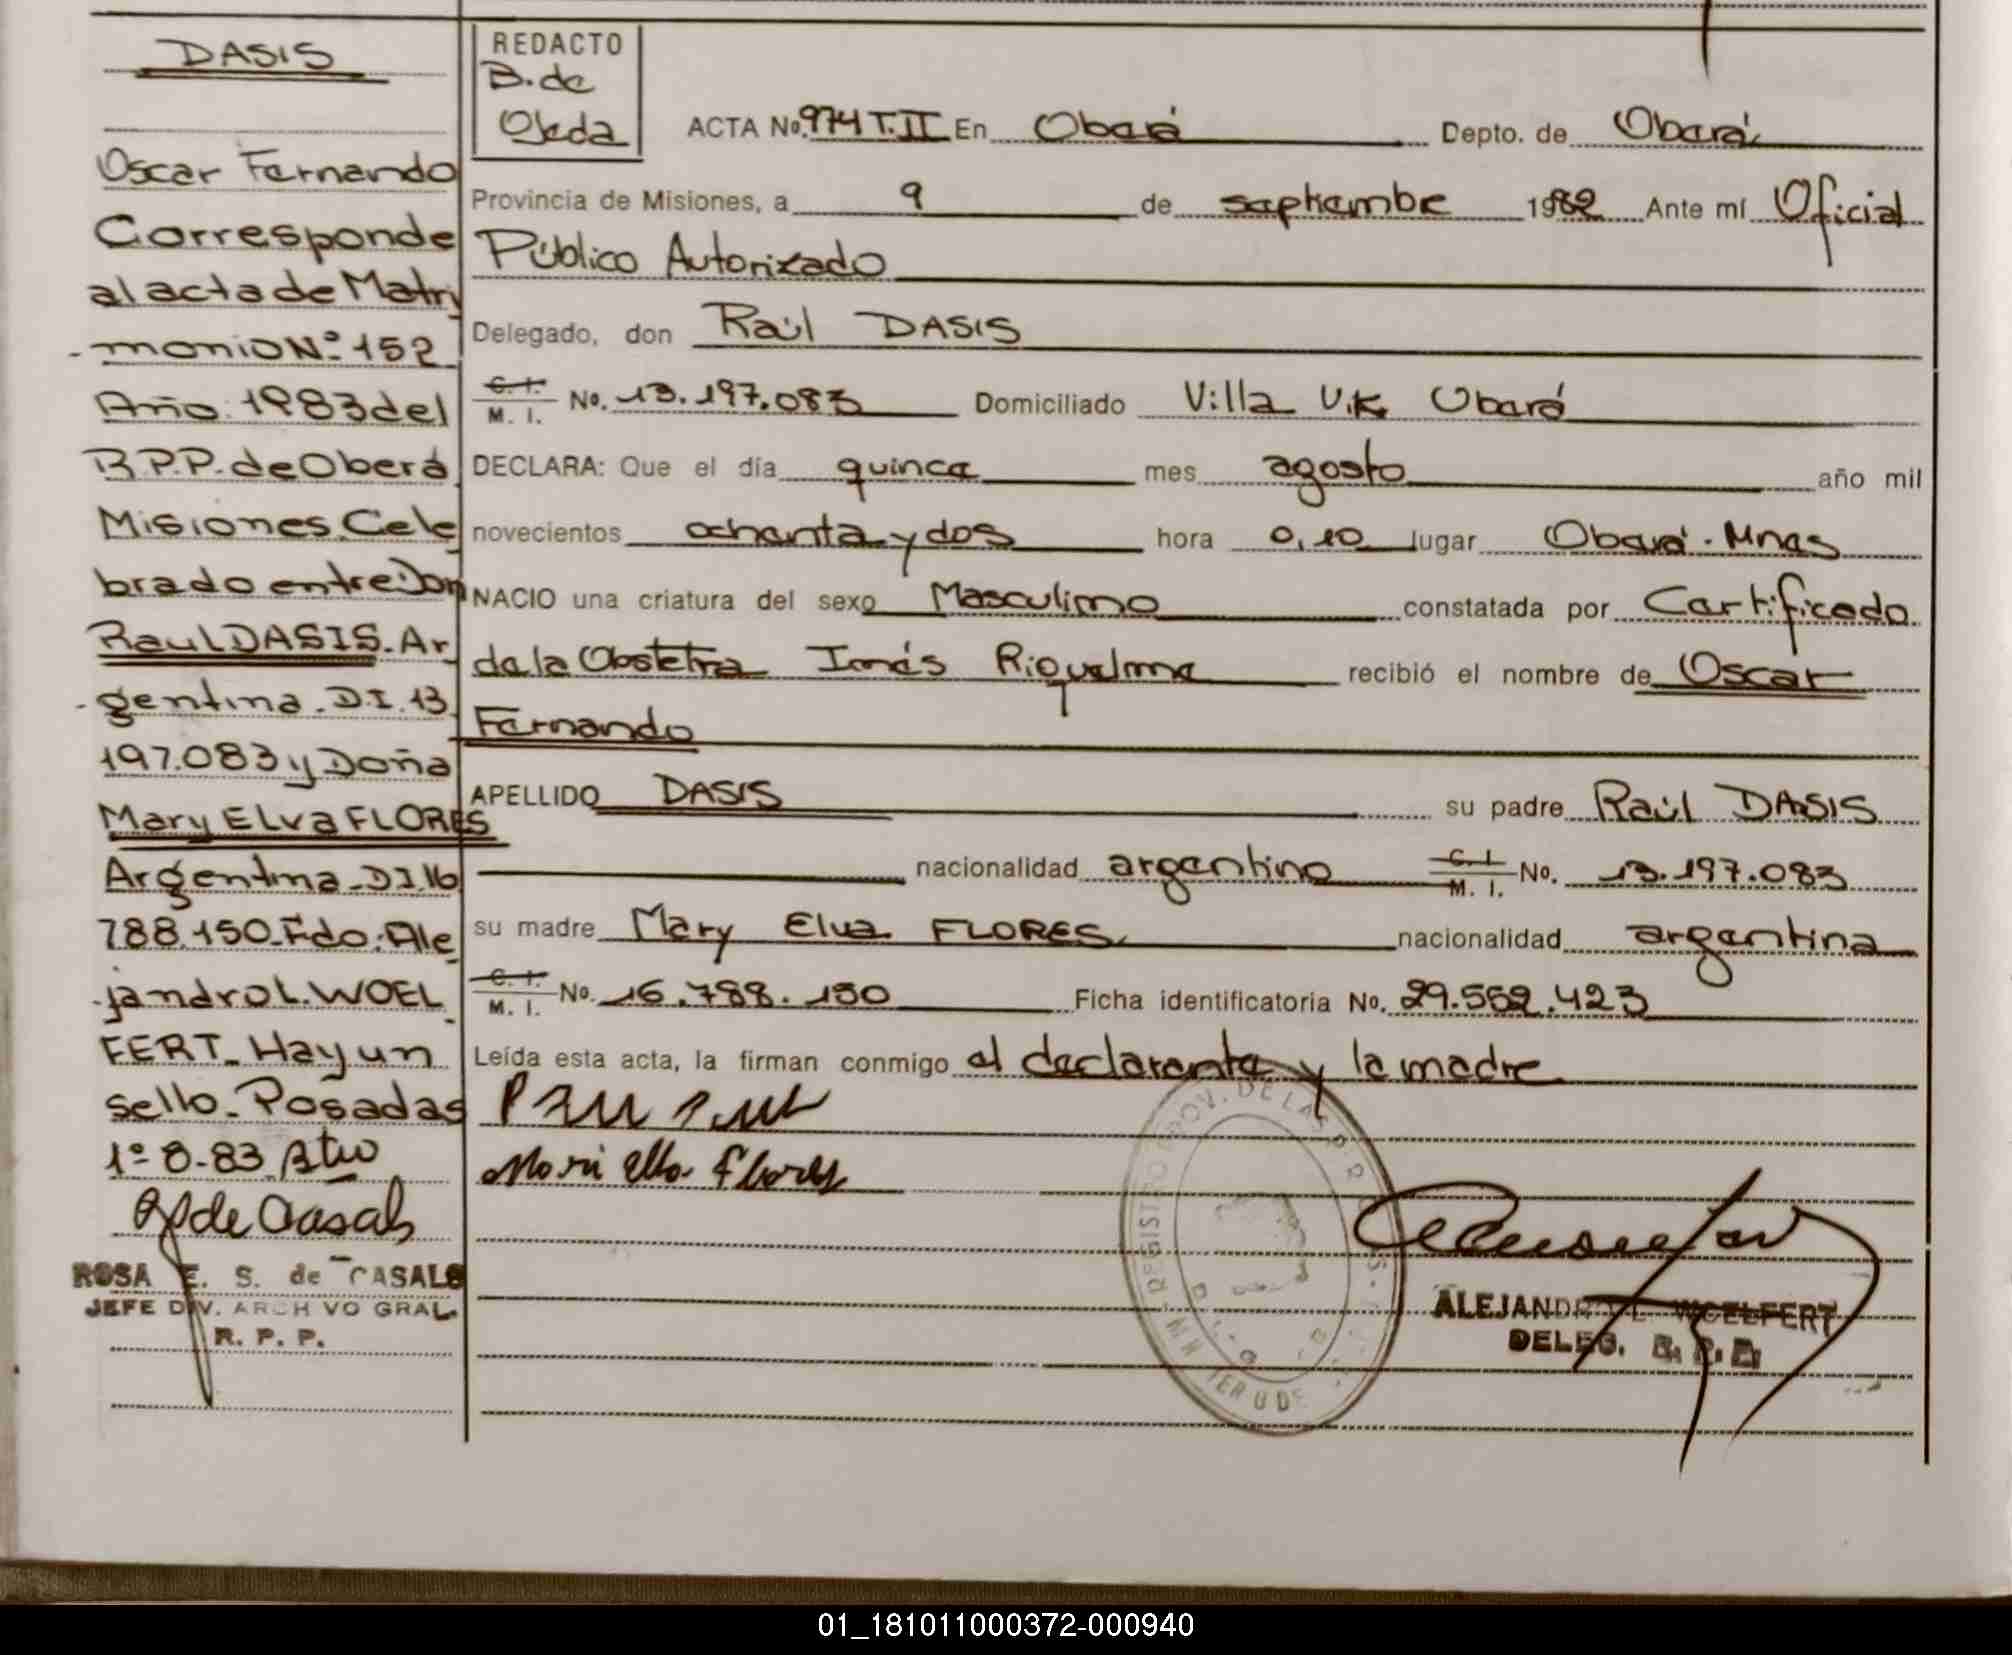 DASIS
Oscar Fernando
Corresponde
al acta de Matri
monio Nº 152
Año 1983 del
R.P.P. de Oberá
Misiones. Cele
brado entre: Don
Raul DASIS. Ar
gentina. D.I. 13
197.083 y Doña
Mary ELva FLORES
Argentina - D.I. 16
788.150. Fdo: Ale
jandro L. WOEL
FERT. Hay un
sello. Posadas
1º-8-83
de Casals
ROSA E. S. de CASALS
JEFE DIV. ARCHIVO GRAL.
R. P. P.
REDACTO
B. de
Ojeda
ACTA No. 974 T. II En Oberá Depto. de Oberá
Provincia de Misiones, a 9 de septiembre 1982 Ante mí Oficial
Público Autorizado
Delegado, don Raúl DASIS
C. I. M. I. No. 13.197.083 Domiciliado Villa U.K. Oberá
DECLARA: Que el día quince mes agosto año mil
novecientos ochenta y dos hora 0,10 lugar Oberá - Mnes
NACIO una criatura del sexo Masculino constatada por Certificado
de la Obstetra Inés Riquelme recibió el nombre de Oscar
Fernando
APELLIDO DASIS su padre Raúl DASIS
nacionalidad argentino C. I. M. I. No. 13.197.083
su madre Mary Elva FLORES nacionalidad argentina
C. I. M. I. No. 16.788.150 Ficha identificatoria No. 29.552.423
Leída esta acta, la firman conmigo el declarante y la madre
Mari Elba Flores
ALEJANDRO L. WOELFERT
DELEG. R. P. P.
01_181011000372-000940